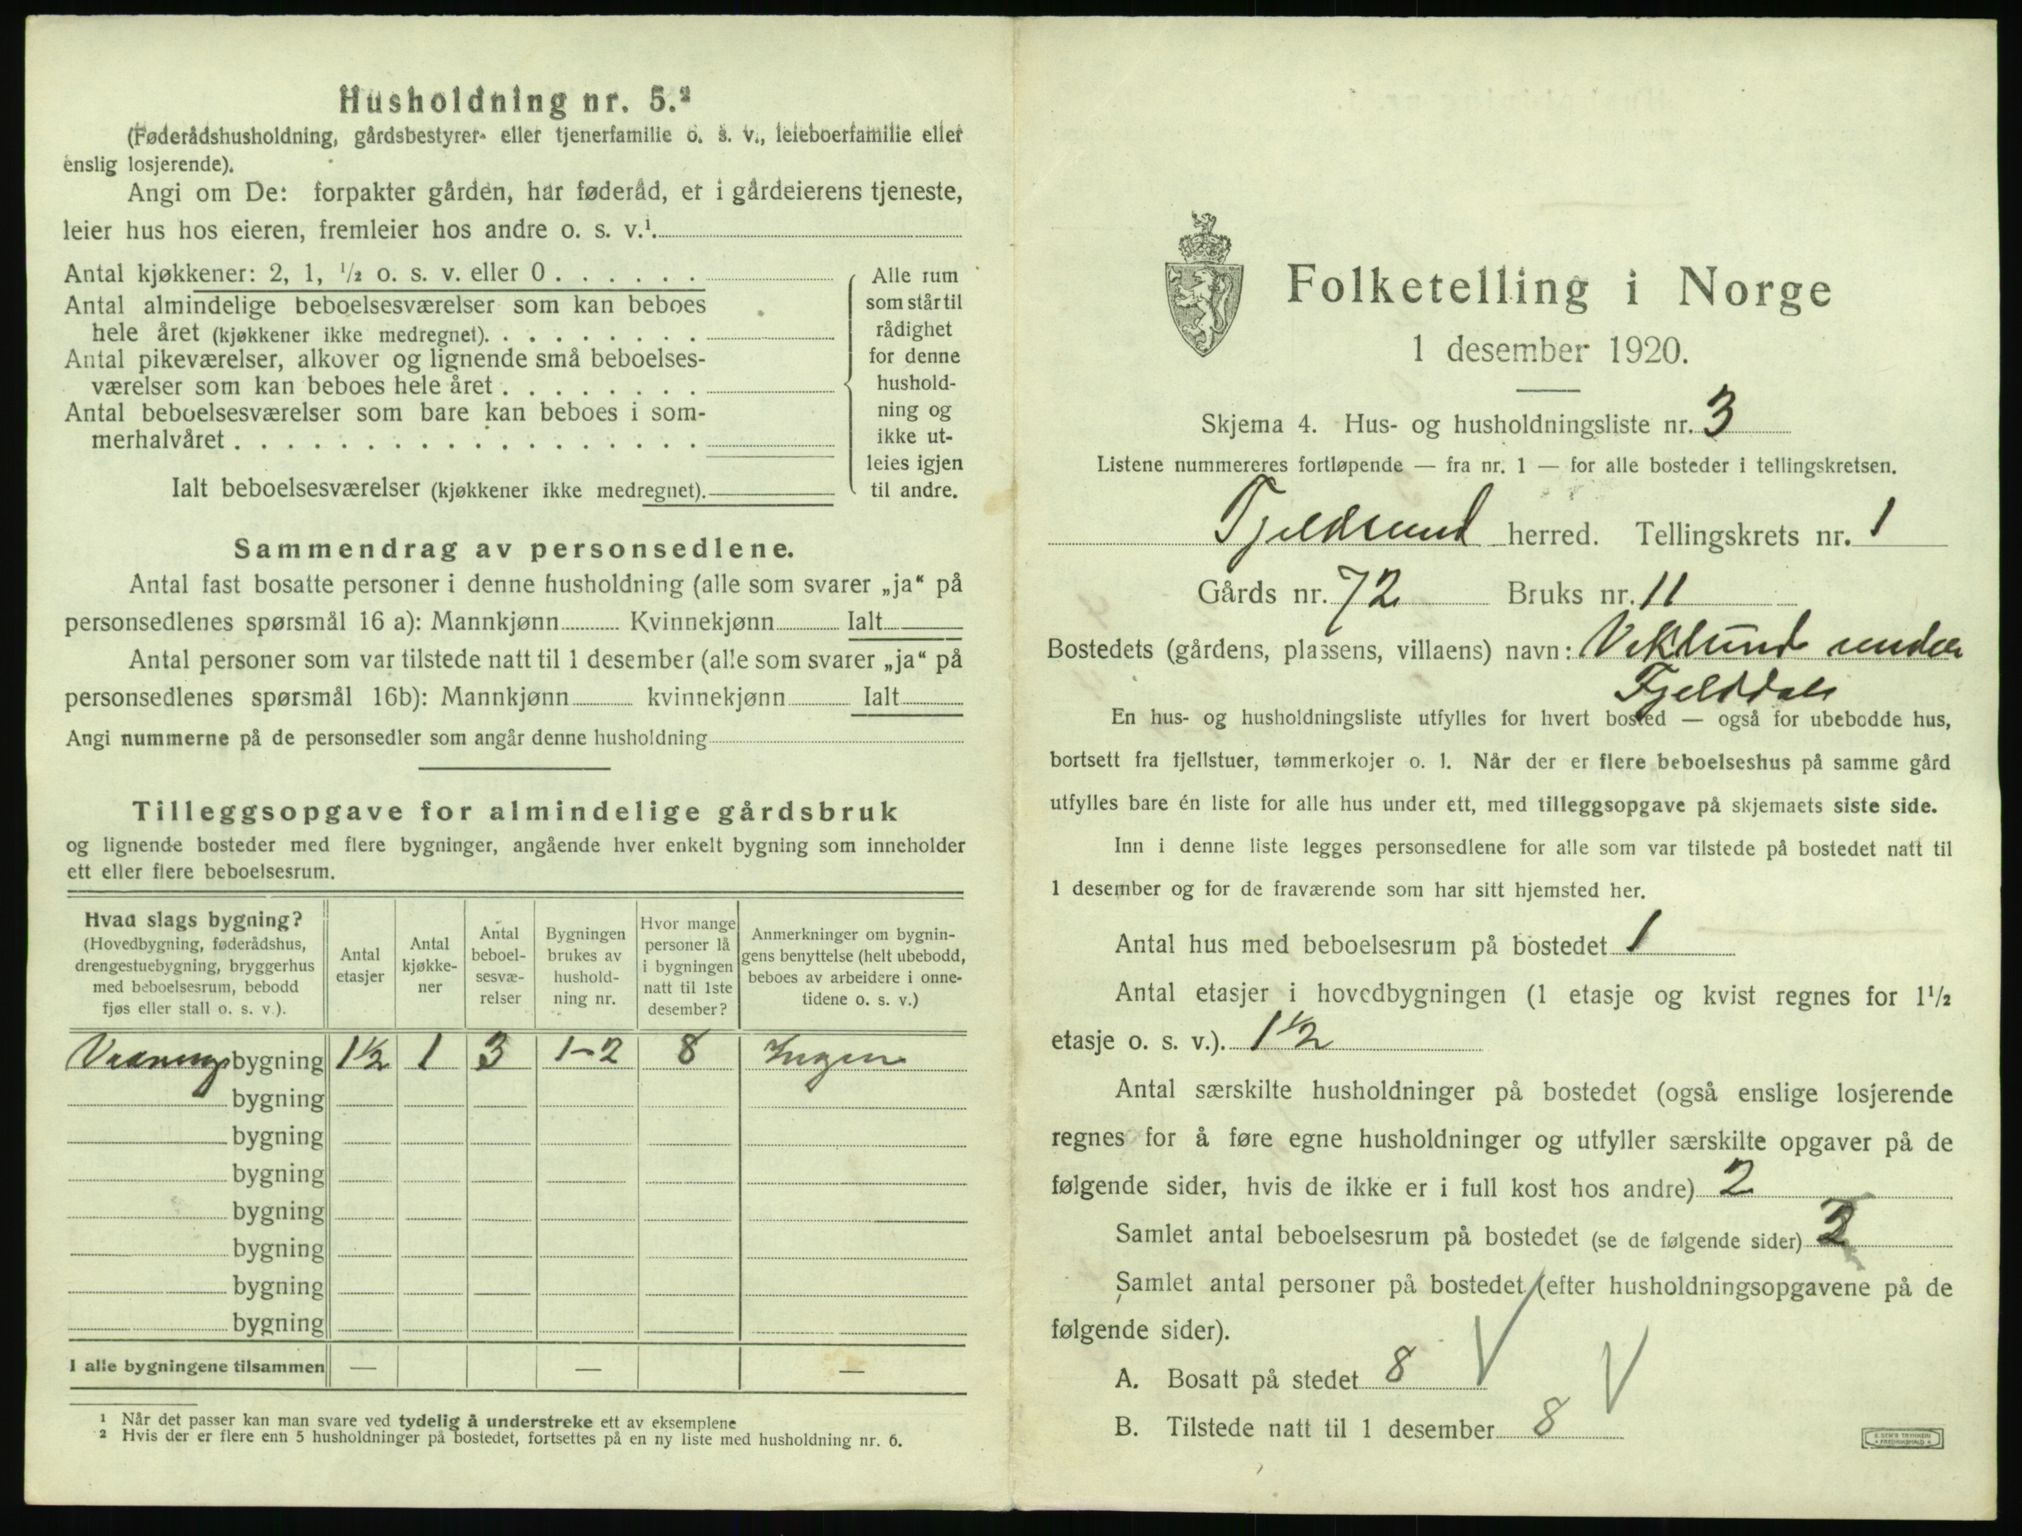 Husholdning nr. 5.²
(Føderådshusholdning, gårdsbestyrer- eller tjenerfamilie o. s. v., leieboerfamilie eller
enslig losjerende).
Angi om De: forpakter gården, har føderåd, er i gårdeierens tjeneste,
leier hus hos eieren, fremleier hos andre o. s. v.¹
Antal kjøkkener: 2, 1, ½ o. s. v. eller 0
Antal almindelige beboelsesværelser som kan beboes
hele året (kjøkkener ikke medregnet)
Antal pikeværelser, alkover og lignende små beboelses-
værelser som kan beboes hele året
Antal beboelsesværelser som bare kan beboes i som-
merhalvåret
Ialt beboelsesværelser (kjøkkener ikke medregnet)
Alle rum
som står til
rådighet
for denne
hushold-
ning og
ikke ut-
leies igjen
til andre.
Sammendrag av personsedlene.
Antal fast bosatte personer i denne husholdning (alle som svarer „ja“ på
personsedlenes spørsmål 16 a): Mannkjønn Kvinnekjønn Ialt
Antal personer som var tilstede natt til 1 desember (alle som svarer „ja“ på
personsedlenes spørsmål 16b): Mannkjønn kvinnekjønn Ialt
Angi nummerne på de personsedler som angår denne husholdning
Tilleggsopgave for almindelige gårdsbruk
og lignende bosteder med flere bygninger, angående hver enkelt bygning som inneholder
ett eller flere beboelsesrum.
Hvad slags bygning?
(Hovedbygning, føderådshus,
drengestuebygning, bryggerhus
med beboelsesrum, bebodd
fjøs eller stall o. s. v.).
Antal
etasjer
Antal
kjøkke-
ner
Antal
beboel-
sesvæ-
relser
Bygningen
brukes av
hushold-
ning nr.
Hvor mange
personer lå
i bygningen
natt til 1ste
desember?
Anmerkninger om bygnin-
gens benyttelse (helt ubebodd,
beboes av arbeidere i onne-
tidene o. s. v.)
bygning 1½ 1 3 1-2 8 Ingen
bygning
bygning
bygning
bygning
bygning
bygning
bygning
I alle bygningene tilsammen — — —
¹ Når det passer kan man svare ved tydelig å understreke ett av eksemplene
² Hvis der er flere enn 5 husholdninger på bostedet, fortsettes på en ny liste med husholdning nr. 6.
Folketelling i Norge
1 desember 1920.
Skjema 4. Hus- og husholdningsliste nr. 3
Listene nummereres fortløpende — fra nr. 1 — for alle bosteder i tellingskretsen.
Tjeldsund herred. Tellingskrets nr. 1
Gårds nr. 72 Bruks nr. 11
Bostedets (gårdens, plassens, villaens) navn: Viklund under
Fjelddal
En hus- og husholdningsliste utfylles for hvert bosted — også for ubebodde hus,
bortsett fra fjellstuer, tømmerkojer o. l. Når der er flere beboelseshus på samme gård
utfylles bare én liste for alle hus under ett, med tilleggsopgave på skjemaets siste side.
Inn i denne liste legges personsedlene for alle som var tilstede på bostedet natt til
1 desember og for de fraværende som har sitt hjemsted her.
Antal hus med beboelsesrum på bostedet 1
Antal etasjer i hovedbygningen (1 etasje og kvist regnes for 1½
etasje o. s. v.). 1½
Antal særskilte husholdninger på bostedet (også enslige losjerende
regnes for å føre egne husholdninger og utfyller særskilte opgaver på de
følgende sider, hvis de ikke er i full kost hos andre) 2
Samlet antal beboelsesrum på bostedet (se de følgende sider)
Samlet antal personer på bostedet (efter husholdningsopgavene på de
følgende sider).
A. Bosatt på stedet 8
B. Tilstede natt til 1 desember 8